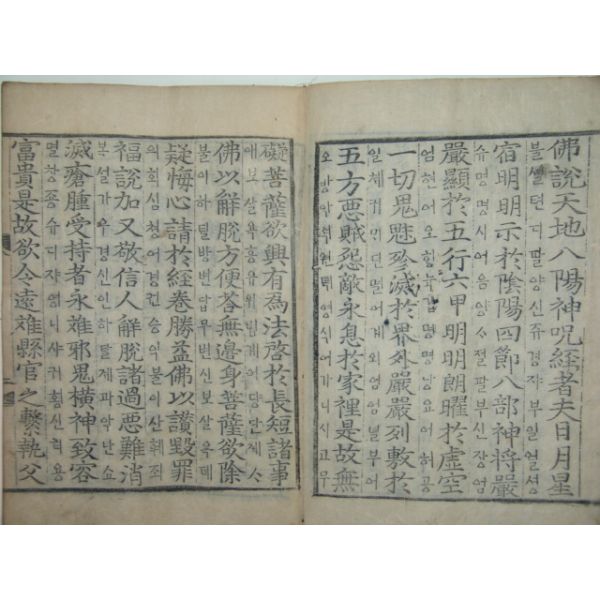 佛說天地八陽神呪經者夫日月星
불셜텬디팔양신쥬경쟈부일월셩
宿明明示於陰陽四節八部神將嚴
슈명명시어음양ᄉ졀팔부신쟝엄
嚴顯於五行六甲明明朗曜於虛空
엄현어오힝뉵갑명명낭요어허공
一切鬼魅殄滅於界外嚴嚴列敷於
일체귀미딘멸어계외엄엄녈부어
五方惡賊怨敵永息於家裡是故無
오방악적원뎍영식어가니시고무
礙菩薩欲興有為法啓於長短諸事
애보살욕흥유위법계어댱단제ᄉ
佛以解脫方便答無邊身菩薩欲除
불이하탈방변답무변신보살욕뎨
疑悔心請於經卷勝益佛以讚毀罪
의회심쳥어경권승익불이산훼죄
福說加又敬信人解脫諸過惡難消
복셜가우경신인하탈제과악난쇼
滅瘡腫受持者永離邪鬼橫神致容
멸창죵슈디쟈영니샤귀횡신티용
富貴是故欲令遠離縣官之繫執父